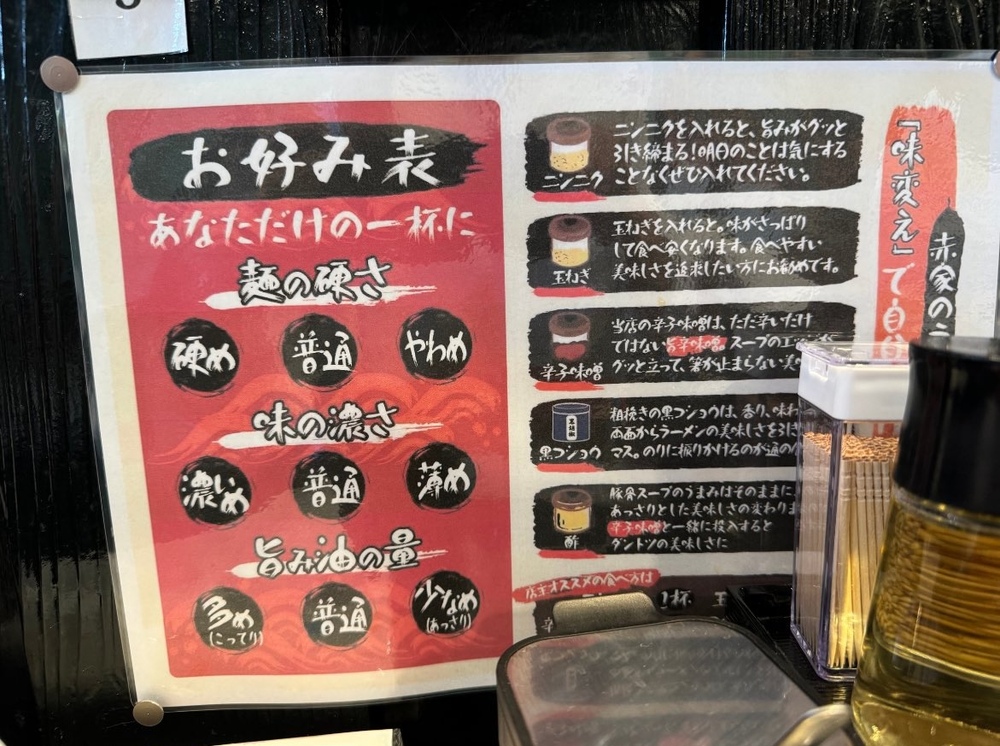 お好み表
あなただけの一杯に
麺の硬さ
硬め
普通
やわめ
味の濃さ
濃いめ
普通
薄め
旨み油の量
多め
(こってり)
普通
少なめ
(あっさり)
ニンニク
ニンニクを入れると、旨みがグッと
引き締まる!明日のことは気にする
ことなくぜひ入れてください。
玉ねぎ
玉ねぎを入れると。味がさっぱり
して食べ安くなります。食べやすい
美味しさを追求したい方にお勧めです。
辛子味噌
当店の辛子味噌は、ただ辛いだけ
ではない旨辛味噌。スープの
グッと立って、箸が止まらない美
黒コショウ
黒胡椒
粗挽きの黒コショウは、香り、味わ
両面からラーメンの美味しさを引き
マス。のりに振りかけるのが通の
酢
豚骨スープのうまみはそのままに、
あっさりとした美味しさの変わりま
辛子味噌と一緒に投入すると
ダントツの美味しさに
店主オススメの食べ方は
杯
「味変え」で自分
赤家のラ